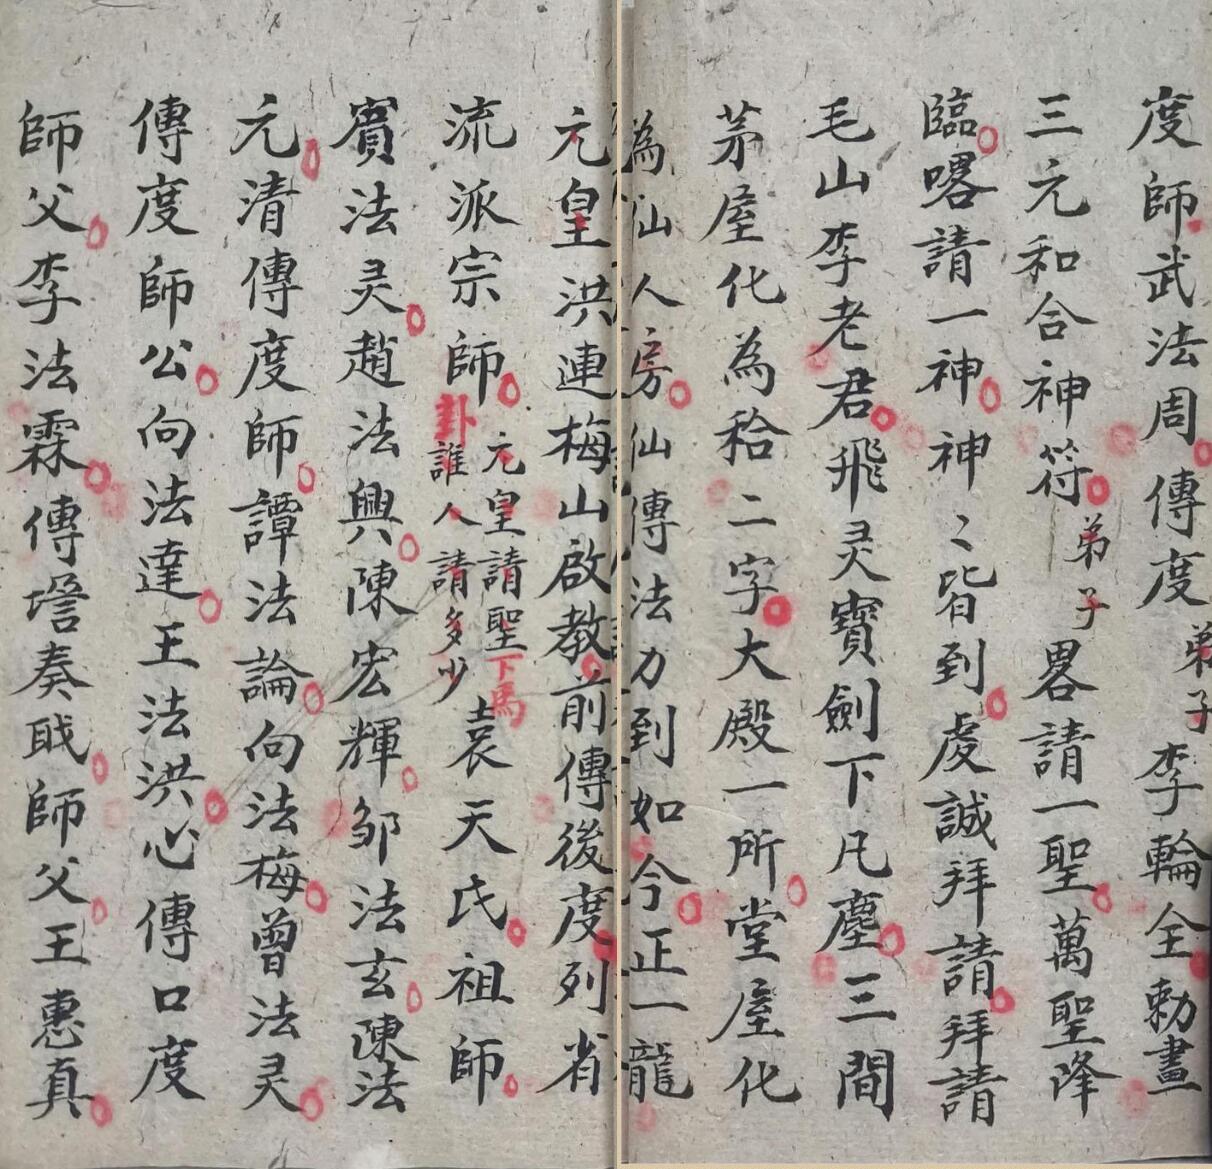 度師武法周傳度弟子李輪全勅畫
三元和合神符弟子畧請一聖萬聖降
臨喀請一神神〻皆到虔誠拜請拜請
毛山李老君飛灵寶劍下凡塵三間
茅屋化為秴二字大殿一所堂屋化
為仙人房仙傳法力到如今正一龍
元皇洪連梅山啟教前傳後度列省
流派宗師元皇請聖下馬
卦誰人請多少袁天氏祖師
賓法灵趙法興陳宏輝邹法玄陳法
元清傳度師譚法論向法梅曾法灵
傳度師公向法達王法洪心傳口度
師父李法霖傳壋奏戝師父王惠真